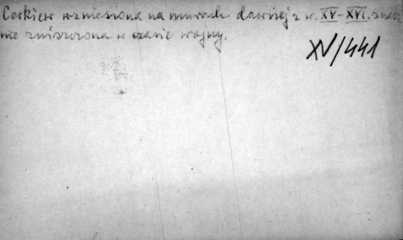 Cerkiew wzniesiona na murach dawniej z w. XV-XVI. znacz
nie zniszczona w czasie wojny.
XV/441